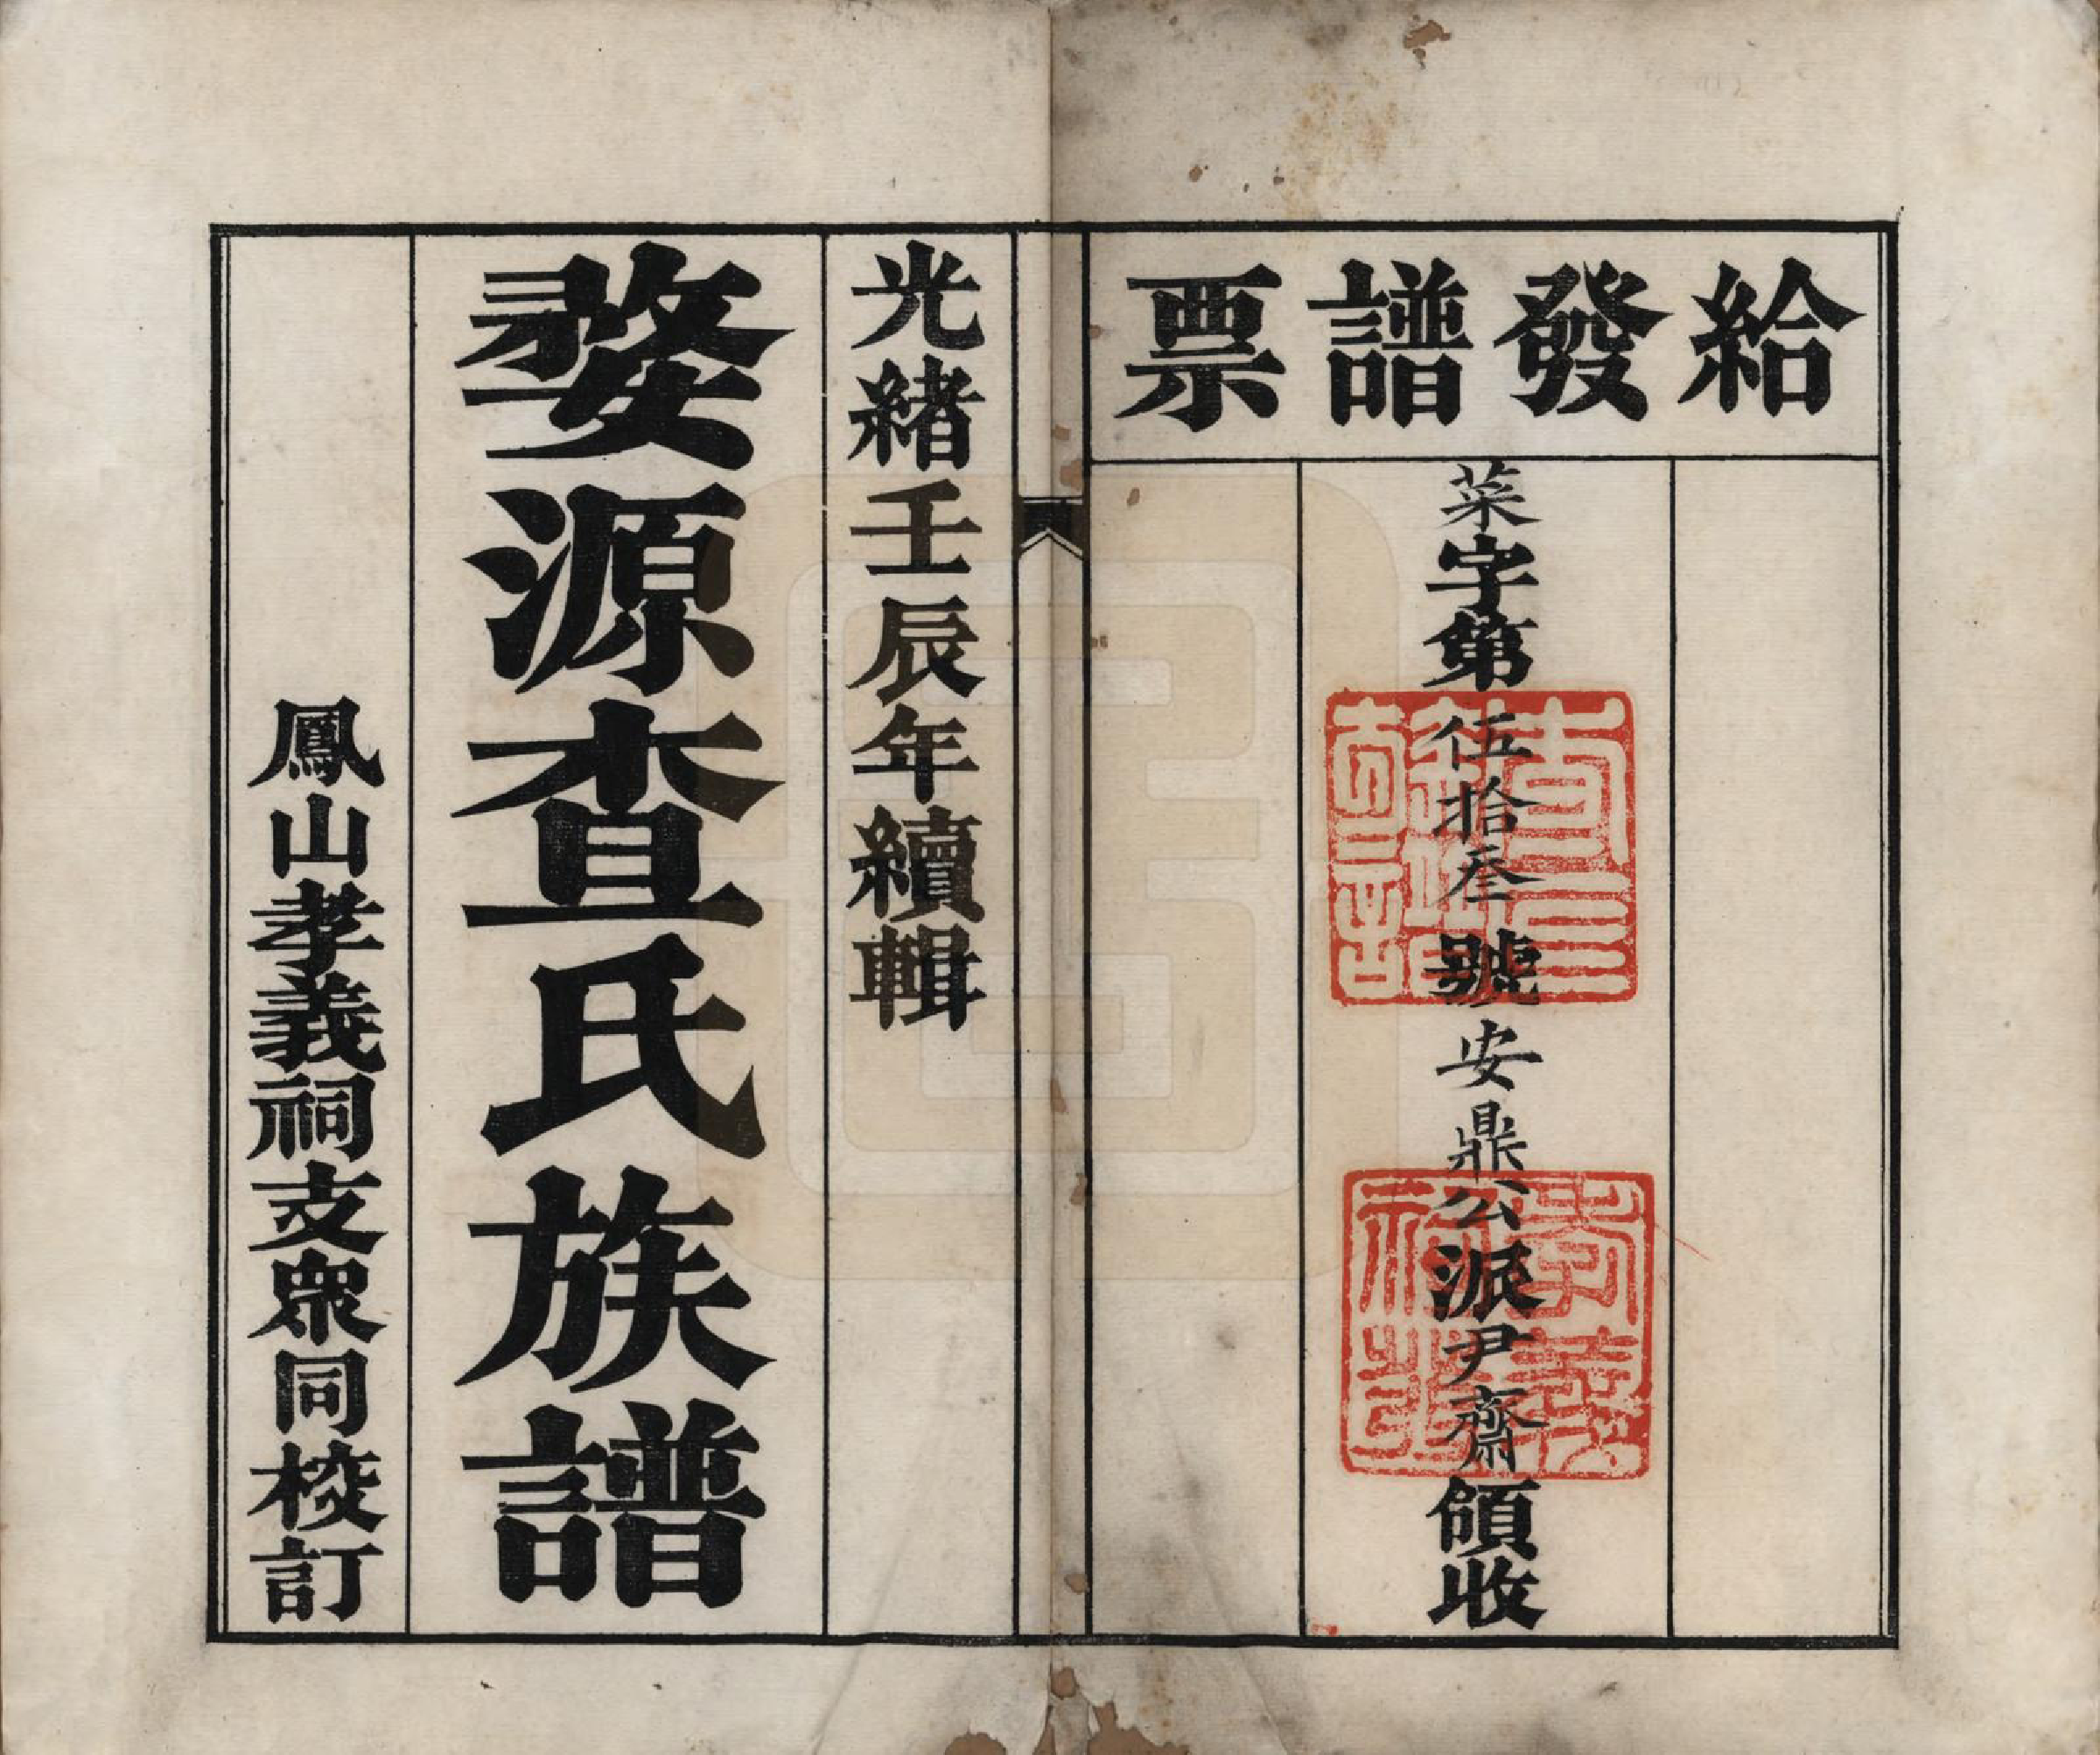 給發譜票
菜字第伍拾叁號安鼎公派尹齋領收
孝義祠
光緒壬辰年續輯
婺源查氏族譜
鳳山孝義祠支衆同校訂